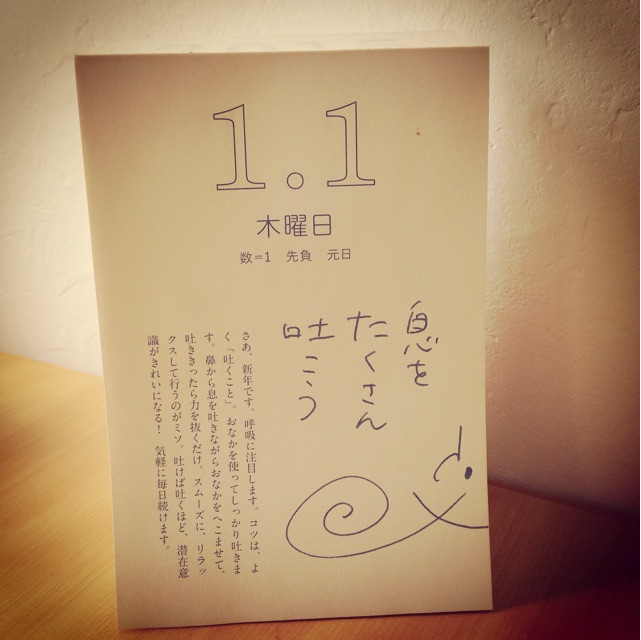 1.1
木曜日
数=1 先負 元日
息を
たくさん
吐こう
さあ、新年です。呼吸に注目します。コツは、よ
く「吐くこと」。おなかを使ってしっかり吐きま
す。鼻から息を吐きながらおなかをへこませて、
吐ききったら力を抜くだけ。スムーズに、リラッ
クスして行うのがミソ。吐けば吐くほど、潜在意
識がきれいになる！ 気軽に毎日続けます。